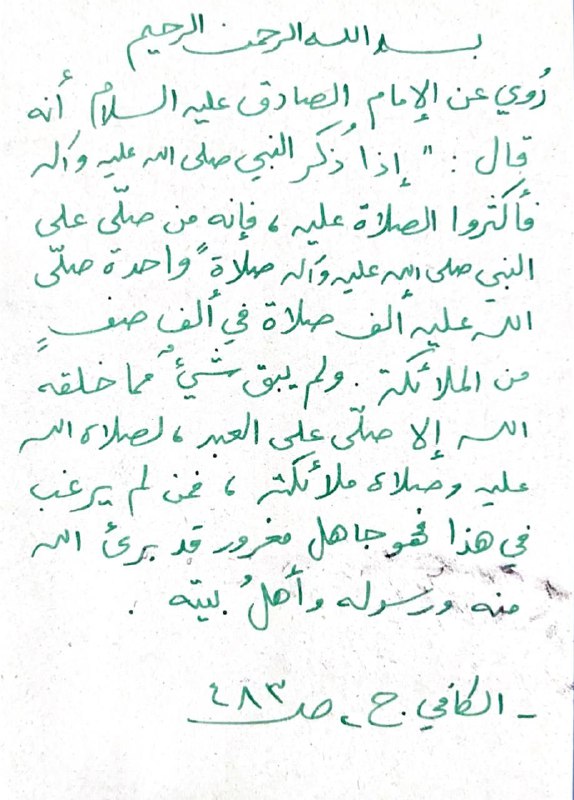 بسم الله الرحمن الرحيم
رُوي عن الإمام الصادق عليه السلام أنه
قال : " إذا ذُكر النبي صلى الله عليه وآله
فأكثروا الصلاة عليه ، فإنه من صلّى على
النبي صلى الله عليه وآله صلاةً واحدة صلّى
الله عليه ألف صلاة في ألف صفٍ
من الملائكة . ولم يبق شيءٌ مما خلقه
الله إلا صلّى على العبد ، لصلاة الله
عليه وصلاة ملائكته ، فمن لم يرغب
في هذا فهو جاهل مغرور قد برئ الله
منه ورسوله وأهلُ بيته .
- الكافي . ج ص ٤٨٣